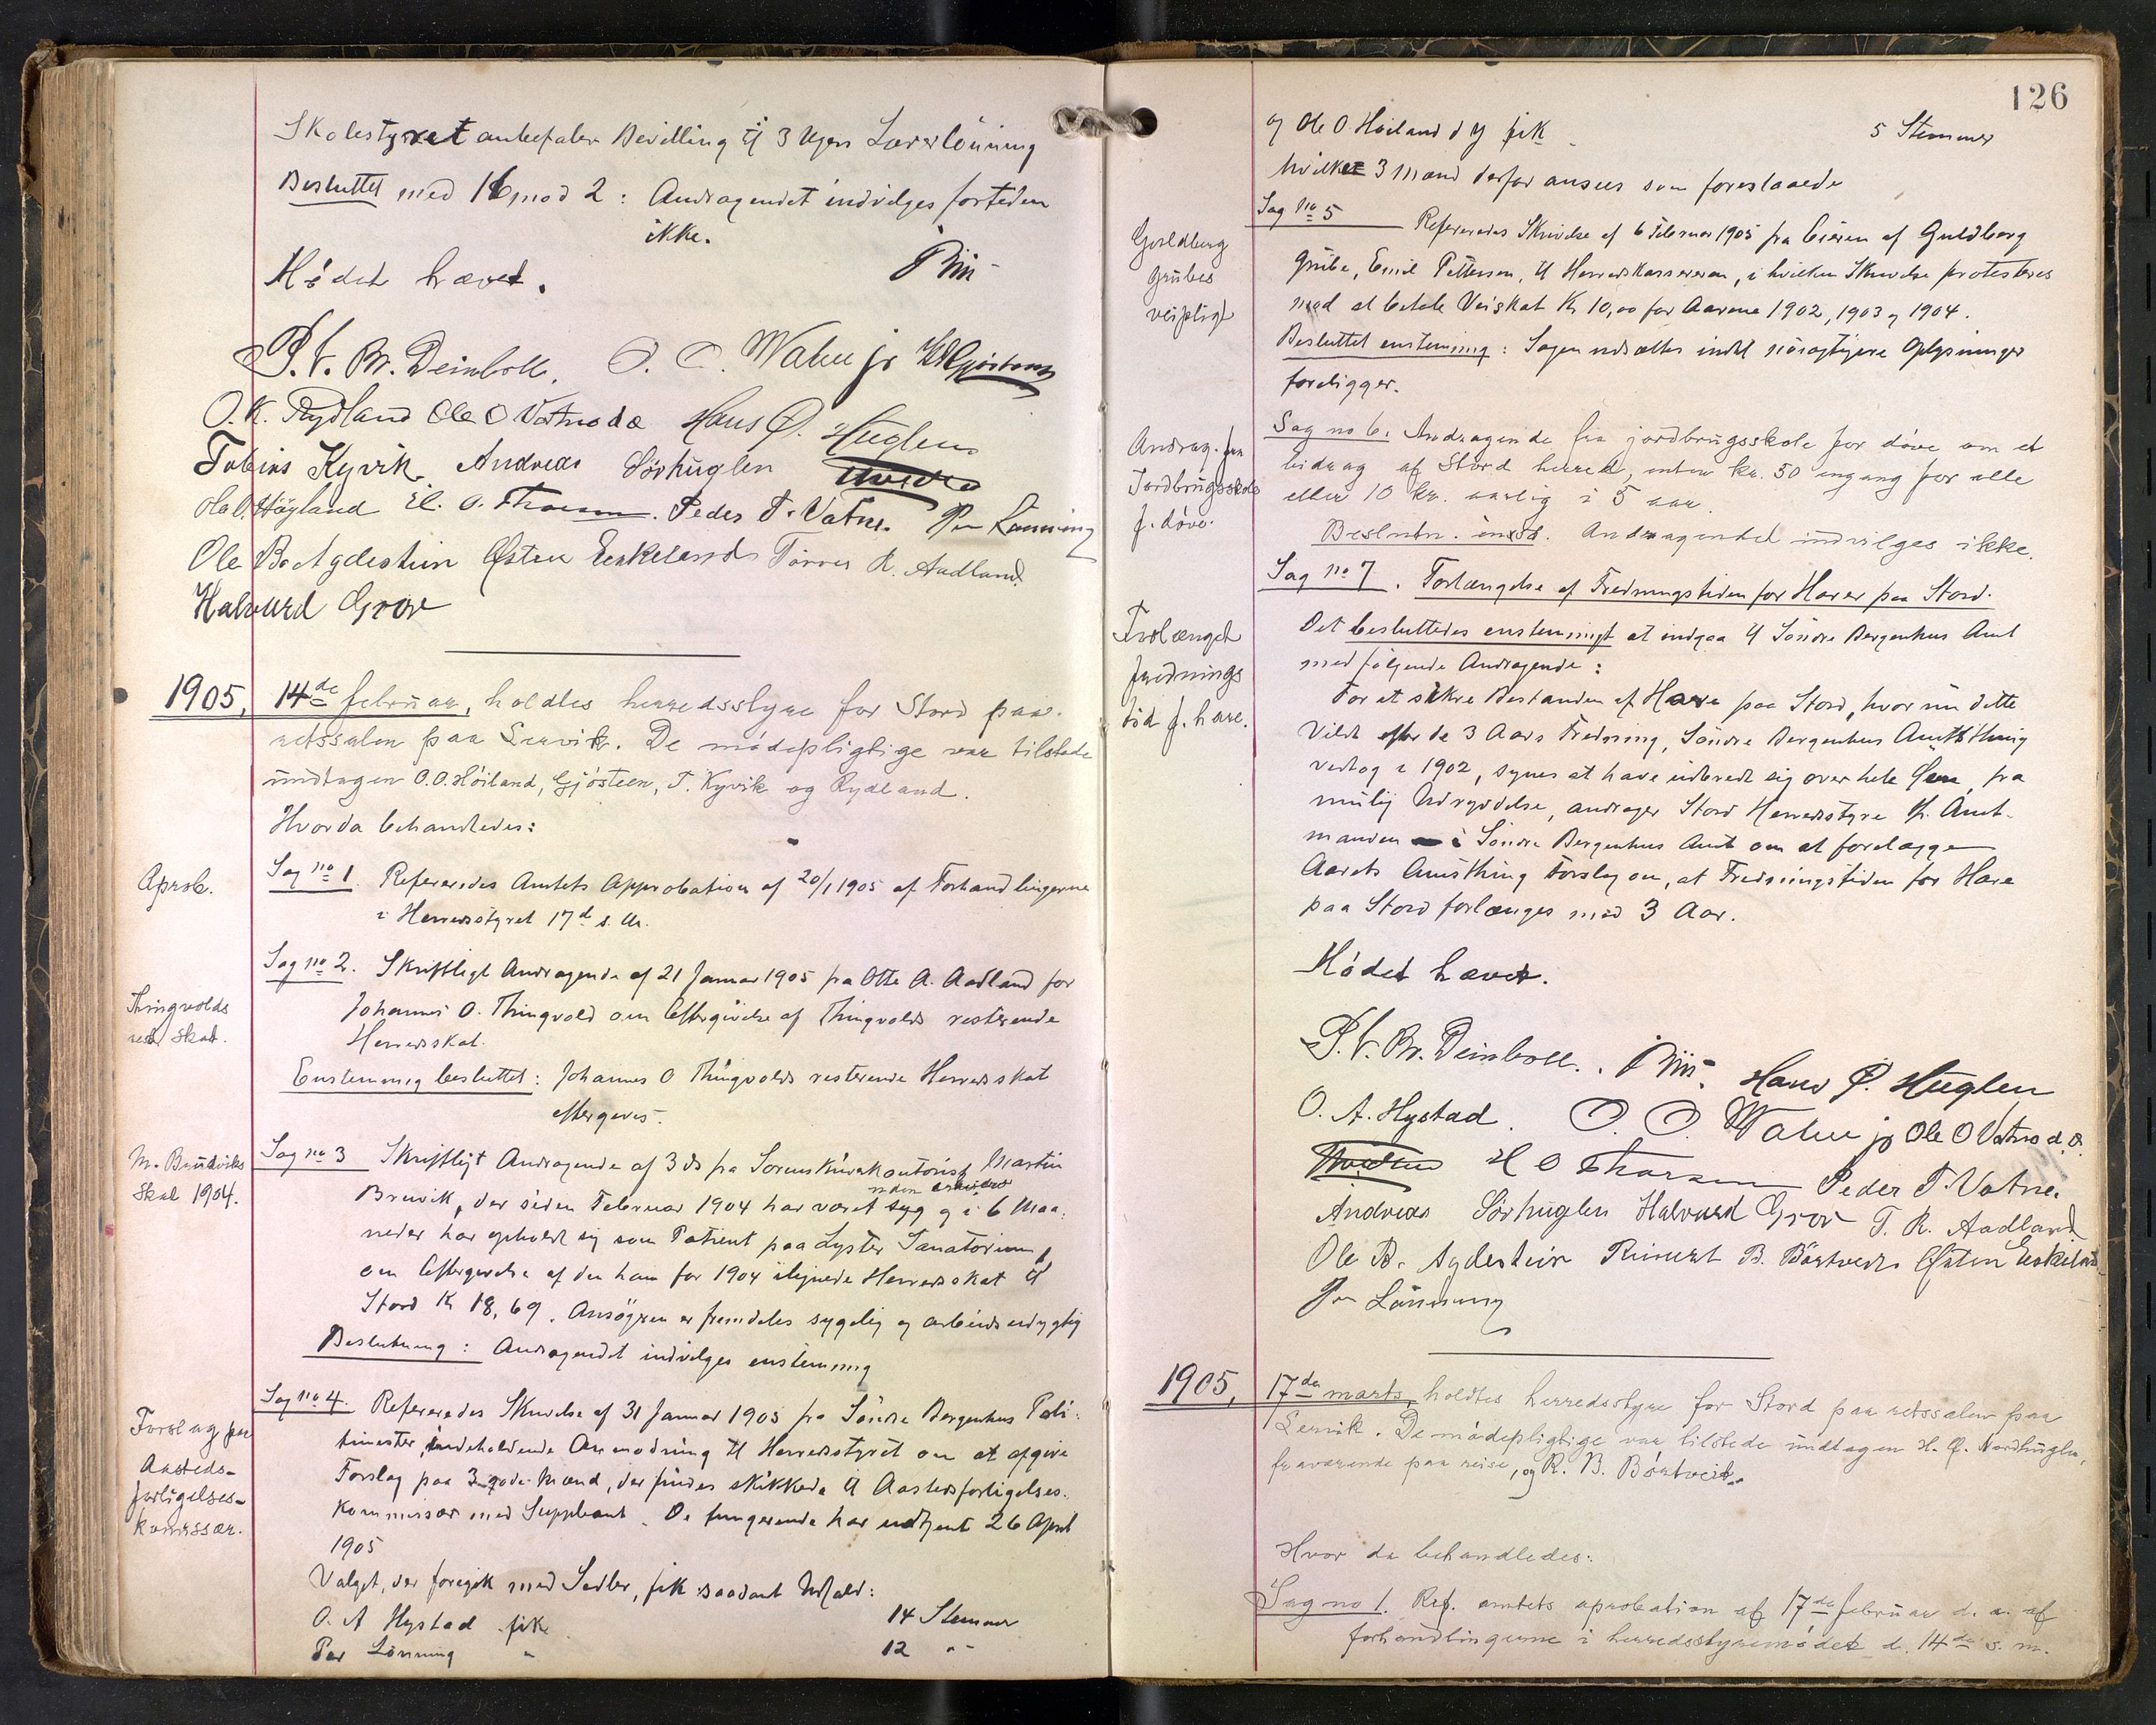 Skolestyret anbefaler Bevilling til 3 Ugers Lærerlönning
Besluttet med 16 mod 2: Andragendet indvilges fortiden
ikke.
Mødet hævet.
P. V. Br. Deinboll. O. O. Watne jr
O. K. Rydland Ole O Vatne d.e. Hans Ø. Huglen
Tobias Kyvik. Andreas Sörhuglen
Ola O. Høyland H. O. Thorsen. Peder T. Vatne. Per Lønning
Ole B. Agdestein Østen Eskeland Tørres R. Aadland.
Halvard Grov
1905, 14de februar, holdtes herredsstyre for Stord paa
retssalen paa Lervik. De mødepligtige var tilstede
undtagen O. O. Höiland, Gjøsteen, T. Kyvik og Rydland.
Hvor da behandledes:
Aprob.
Sag no 1. Refereredes Amtets Approbation af 20/1 1905 af Forhandlingerne
i Herredsstyret 17d s. M.
Thingvolds
rest. Skat.
Sag no 2. Skriftligt Andragende af 21 Januar 1905 fra Otte A. Aadland for
Johannes O. Thingvold om Eftergivelse af Thingvolds resterende
Herredsskat.
Enstemmig besluttet: Johannes O Thingvolds resterende Herredsskat
eftergives.
M. Bruviks
Skat 1904.
Sag no 3 Skriftligt Andragende af 3 ds fra Sorenskriverkontorist Martin
Bruvik, der siden Februar 1904 har været syg og i 6 Maa-
neder har opholdt sig som Patient paa Lyster Sanatorium,
om Eftergivelse af den ham for 1904 ilignede Herredsskat til
Stord Kr 18,69. Ansögeren er fremdeles sygelig og arbeidsudygtig
Beslutning: Andragendet indvilges enstemmig
Forslag paa
Aasteds-
forligelses-
kommissær.
Sag no 4. Refereredes Skrivelse af 31 Januar 1905 fra Söndre Bergenhus Poli-
timester, indeholdende Anmodning til Herredsstyret om at opgive
Forslag paa 3 gode Mænd, der findes skikkede til Aastedsforligelses-
kommissær med Suppleant. De fungerende har udtjent 26 April
1905
Valget, der foregik med Sedler, fik saadant Udfald:
O. A Hystad fik 14 Stemmer
Per Lönning " 12 "
126
og Ole O. Høiland d y fik 5 Stemmer
hvilke 3 Mænd derfor ansees som foreslaaede
Guldberg
grubes
veipligt
Sag No 5 Refereredes Skrivelse af 6 Februar 1905 fra Eieren af Guldberg
Grube, Emil Pettersen, til Herredskassereren, i hvilken Skrivelse protesteres
mod at betale Veiskat Kr 10,00 for Aarene 1902, 1903 og 1904.
Besluttet enstemmig: Sagen udsættes indtil nöiagtigere Oplysninger
foreligger.
Andrag. fra
Jordbrugsskole
f. døve.
Sag no 6. Andragende fra jordbrugsskole for døve om et
bidrag af Stord herred, enten kr. 50 engang for alle
eller 10 kr. aarlig i 5 aar.
Beslutn. enst. Andragendet indvilges ikke.
Forlænget
frednings
tid f. hare.
Sag no 7. Forlængelse af Fredningstiden for Harer paa Stord.
Det besluttedes enstemmigt at indgaa til Söndre Bergenhus Amt
med følgende Andragende:
For at sikre Bestanden af Hare paa Stord, hvor nu dette
Vildt efter de 3 Aars Fredning, Söndre Bergenhus Amtsthing
vedtog i 1902, synes at have udbredt sig over hele Öen, fra
mulig Udryddelse, andrager Stord Herredsstyre Hr. Amt-
manden i Söndre Bergenhus Amt om at forelægge
Aarets Amtsthing Forslag om, at Fredningstiden for Hare
paa Stord forlænges med 3 Aar.
Mödet hævet.
P. V. Br. Deinboll. Hans Ø. Huglen
O. A. Hystad. O. O. Watne jr Ole O Vatne d. e.
H O Thorsen Peder T. Vatne.
Andreas Sörhuglen Halvard Grov T. R. Aadland
Ole B. Agdestein Reinert B. Börtveit Østen Eskeland
Per Lönning
1905, 17de marts, holdtes herredsstyre for Stord paa retssalen paa
Lervik. De mødepligtige var tilstede undtagen H. Ø. Nordhuglen,
fraværende paa reise, og R. B. Børtveit.
Hvor da behandledes:
Sag no 1. Ref. amtets aprobation af 17de februar d. a. af
forhandlingerne i herredsstyremødet d. 14de s. m.